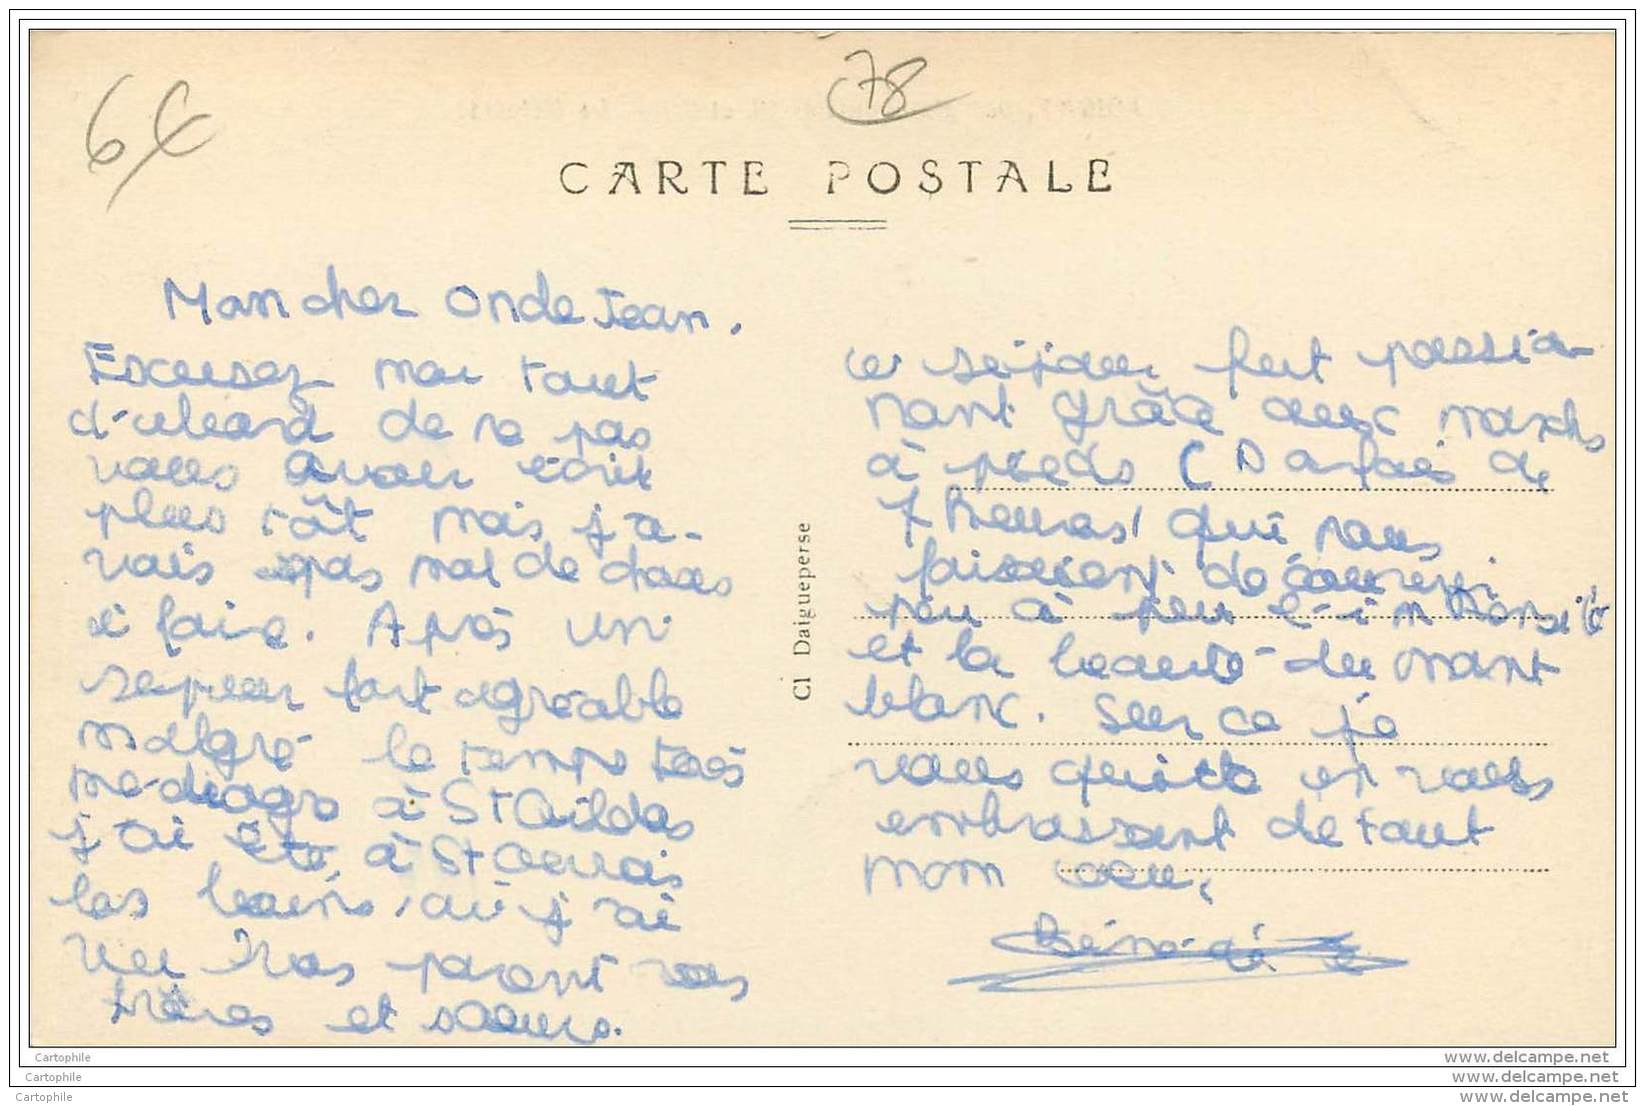 6€
78
CARTE POSTALE
Mon cher Oncle Jean.
Excusez moi tout
d'abord de ne pas
vous avoir écrit
plus tôt mais j'a-
vais pas mal de choses
à faire. Après un
séjour fort agréable
malgré le temps très
médiocre à St Gildas
j'ai été à St Gervais
les bains, où j'ai
vu vos parent vos
frères et soeurs.
Ce séjour fut passio-
nant grâce aux marches
à pieds (Parfois de
7 heures) qui nous
faisaient découvrir
peu à peu l'immensité
et la beauté du mont
blanc. Sur ce je
vous quitte en vous
embrassant de tout
mon coeur,
Cl Daigueperse
Cartophile
Cartophile
Cartophile
www.delcampe.net
www.delcampe.net
www.delcampe.net